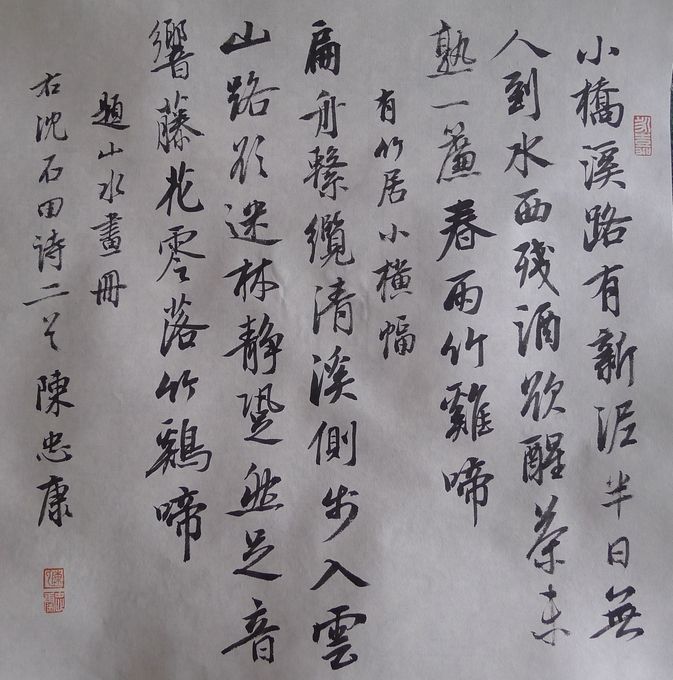 小橋溪路有新泥半日無
人到水西殘酒欲醒茶未
熟一簾春雨竹雞啼
有竹居小橫幅
扁舟繫纜清溪側步入雲
山路欲迷林靜跫然足音
響藤花零落竹鷄啼
題山水畫冊
右沈石田詩二首陳忠康